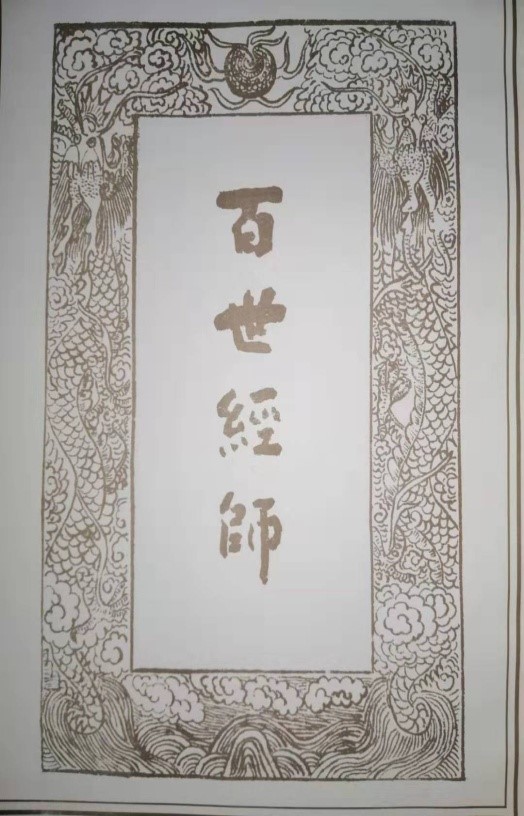 百世經師